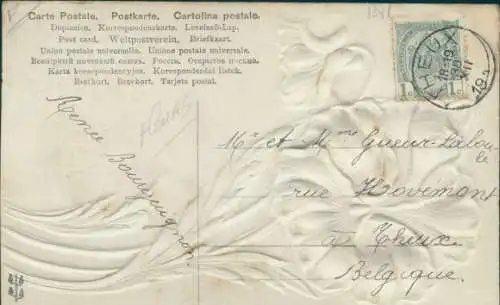 Carte Postale. Postkarte. Cartolina postale.
Dopisnice. Korrespondenzkarte. Levelező-Lap.
Post card. Weltpostverein. Briefkaart.
Union postale universelle. Unione postale universale.
Всемірный почтовый союзъ. Россія. Открытое письмо.
Karta korespondencyjna. Korespondenční lístek.
Brefkort. Brevkort. Tarjeta postal.
Fleurs
Renée Bourguignon
1 c 1 c
THEUX
18-19
XII
Mr et Mme Gueur-Lalou
rue Hovémont
à Theux.
Belgique.